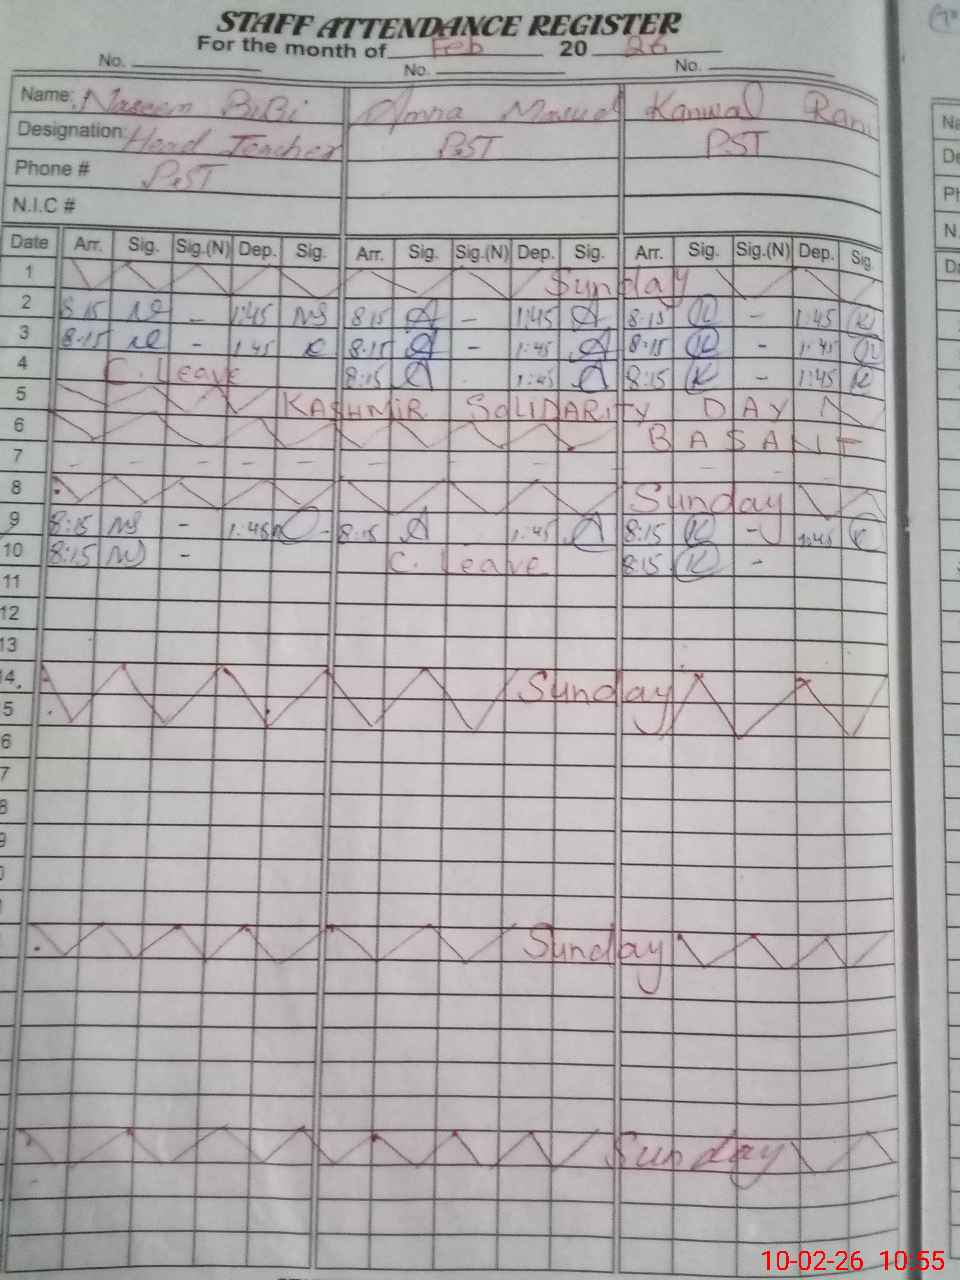 STAFF ATTENDANCE REGISTER
For the month of Feb 20 26
No. No. No.
Name: Naseem BiBi Amna Masud Kanwal Rani
Designation: Head Teacher PST PST
Phone # PST
N.I.C #
Date Arr. Sig. Sig.(N) Dep. Sig. Arr. Sig. Sig.(N) Dep. Sig. Arr. Sig. Sig.(N) Dep. Sig.
1 Sunday
2 8:15 - 1:45 NS 8:15 A - 1:45 A 8:15 K - 1:45 K
3 8:15 - 1:45 8:15 A - 1:45 A 8:15 K - 1:45 K
4 C. Leave 8:15 A 1:45 A 8:15 K - 1:45 K
5 KASHMIR SOLIDARITY DAY
6 BASANT
7 - - - - - - - - - -
8 Sunday
9 8:15 NS - 1:45 - 8:15 A 1:45 A 8:15 K - 1:45 K
10 8:15 NS - C. Leave 8:15 K -
11
12
13
4 Sunday
5
6
7
8
9
0
Sunday
Sunday
10-02-26 10:55